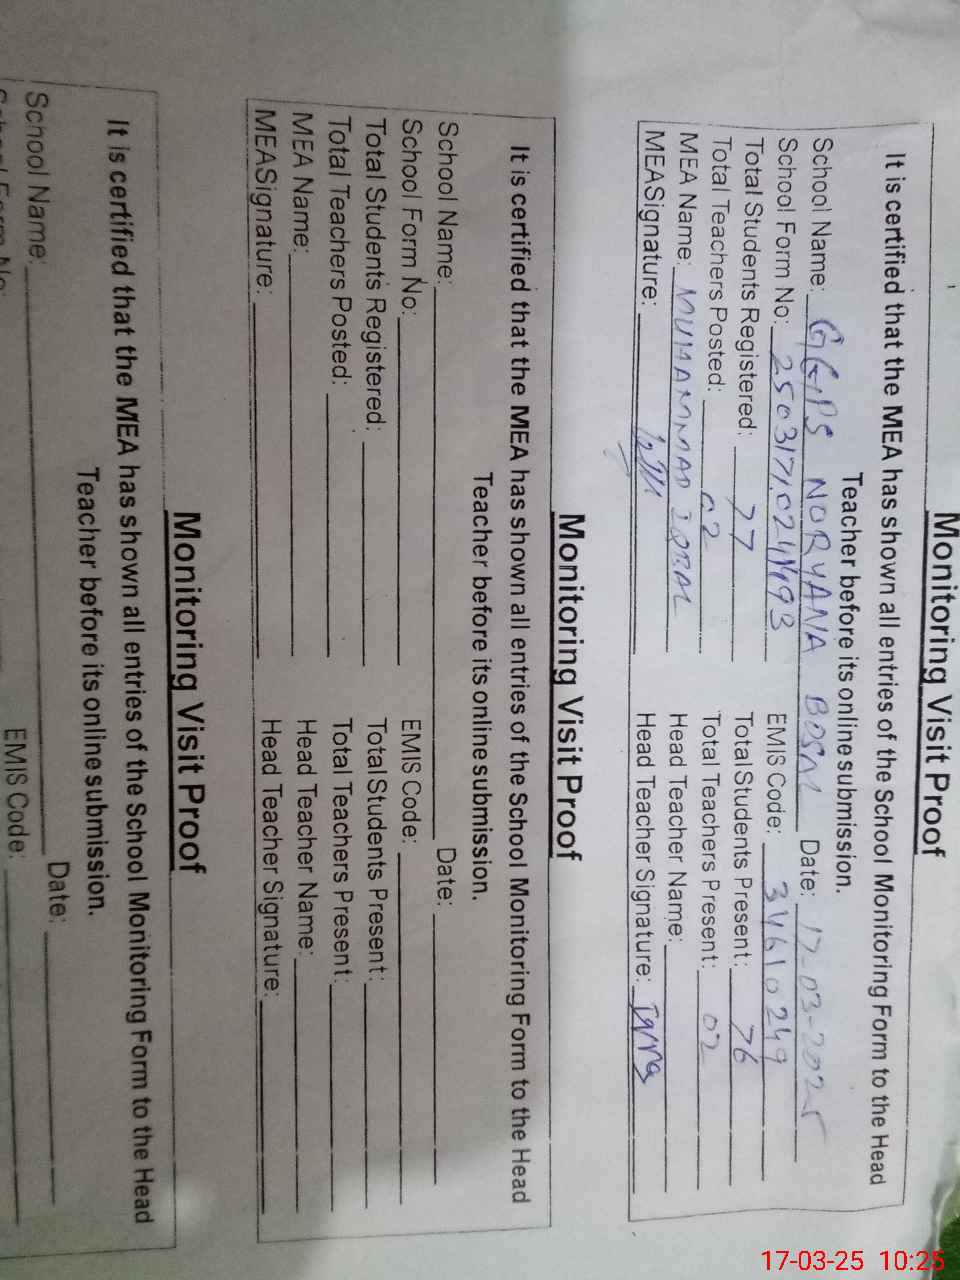 Monitoring Visit Proof
It is certified that the MEA has shown all entries of the School Monitoring Form to the Head
Teacher before its online submission.
School Name: GGPS NORYANA BOSAL Date: 17-03-2025
School Form No: EMIS Code: 34610249
Total Students Registered: 77 Total Students Present: 76
Total Teachers Posted: 02 Total Teachers Present: 02
MEA Name: MUHAMMAD IQBAL Head Teacher Name:
MEASignature: Head Teacher Signature: Iqra
Monitoring Visit Proof
It is certified that the MEA has shown all entries of the School Monitoring Form to the Head
Teacher before its online submission.
School Name: Date:
School Form No: EMIS Code:
Total Students Registered: Total Students Present:
Total Teachers Posted: Total Teachers Present:
MEA Name: Head Teacher Name:
MEASignature: Head Teacher Signature:
Monitoring Visit Proof
It is certified that the MEA has shown all entries of the School Monitoring Form to the Head
Teacher before its online submission.
School Name: Date:
EMIS Code:
17-03-25 10:25